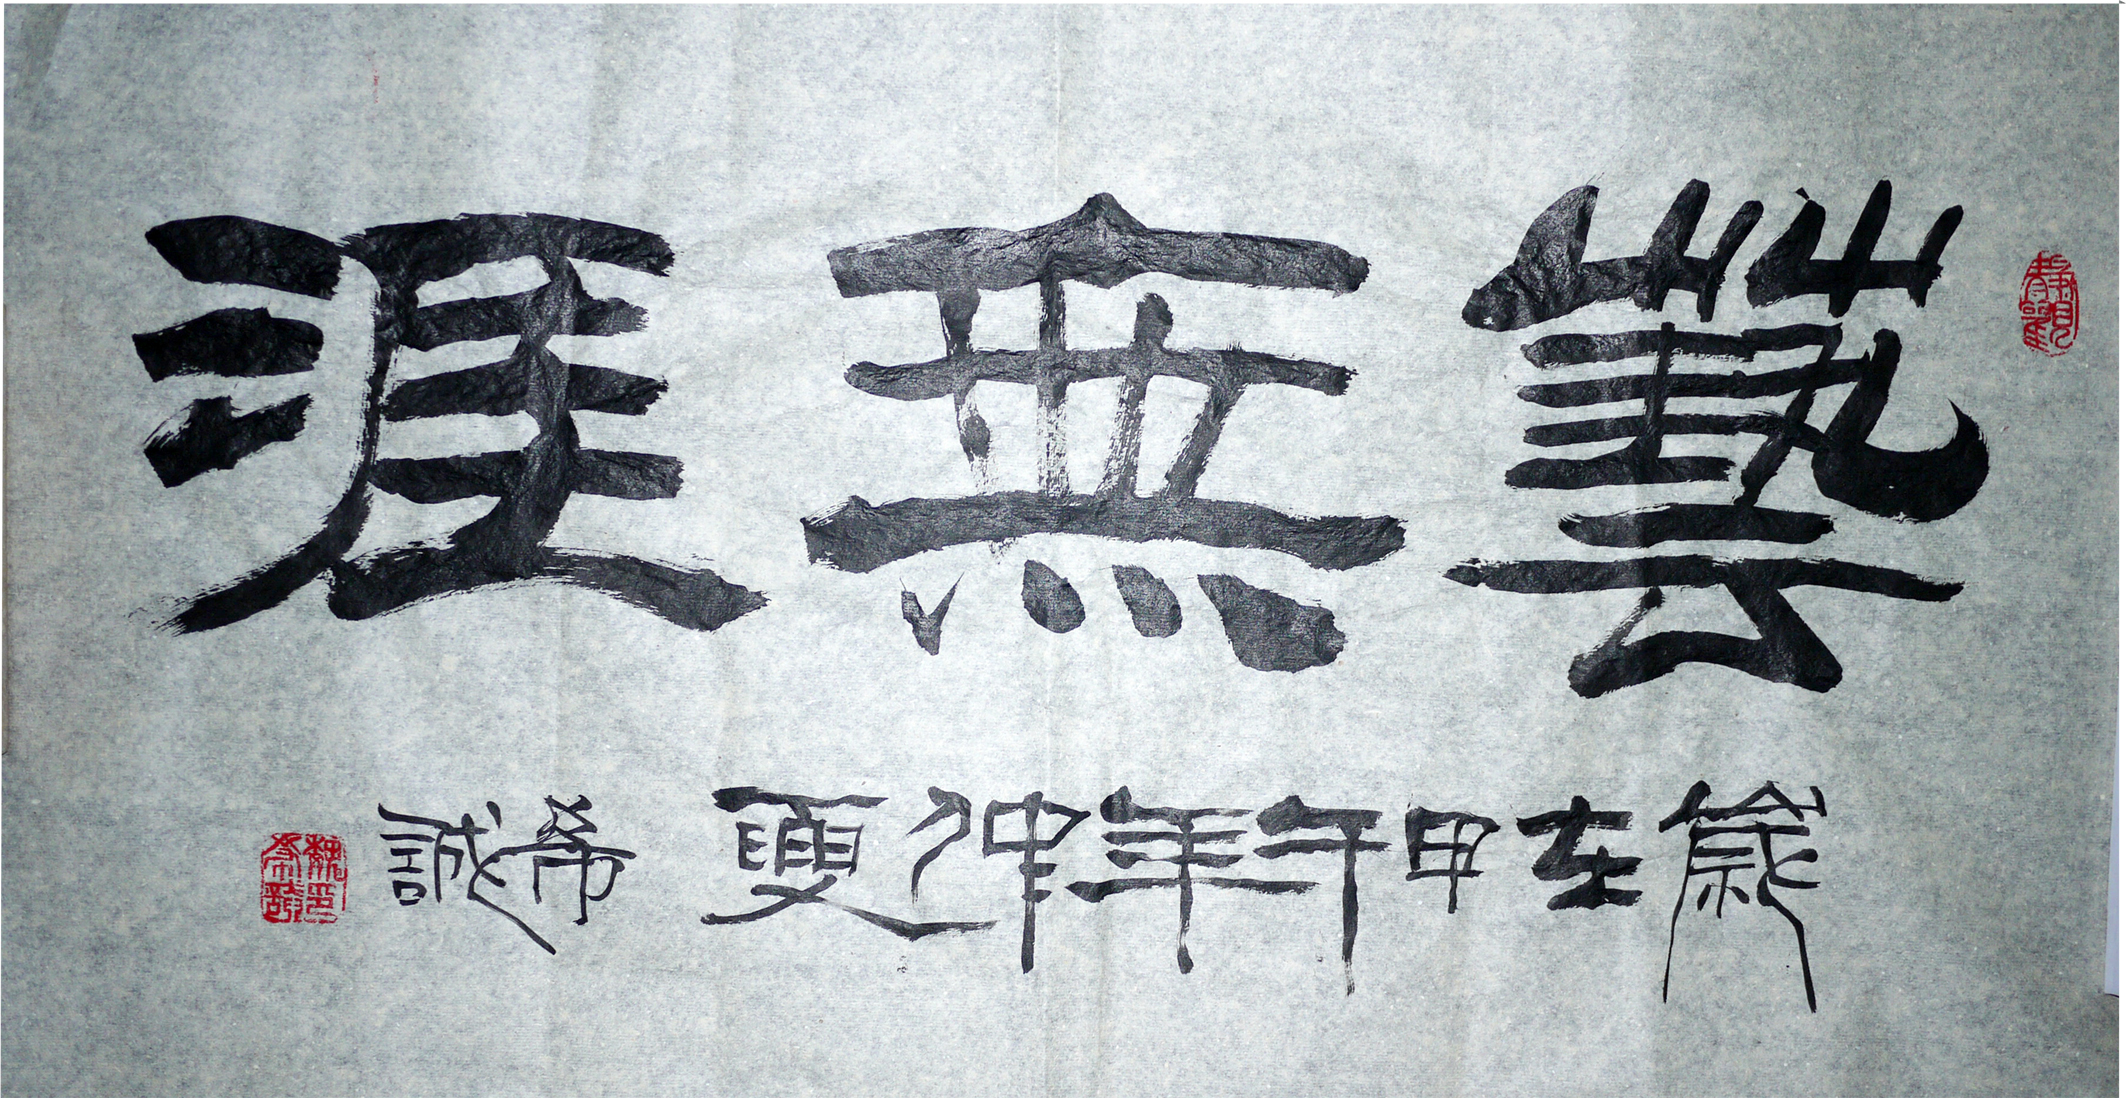 藝無涯
歲在甲午年仲夏 希誠
靜觀